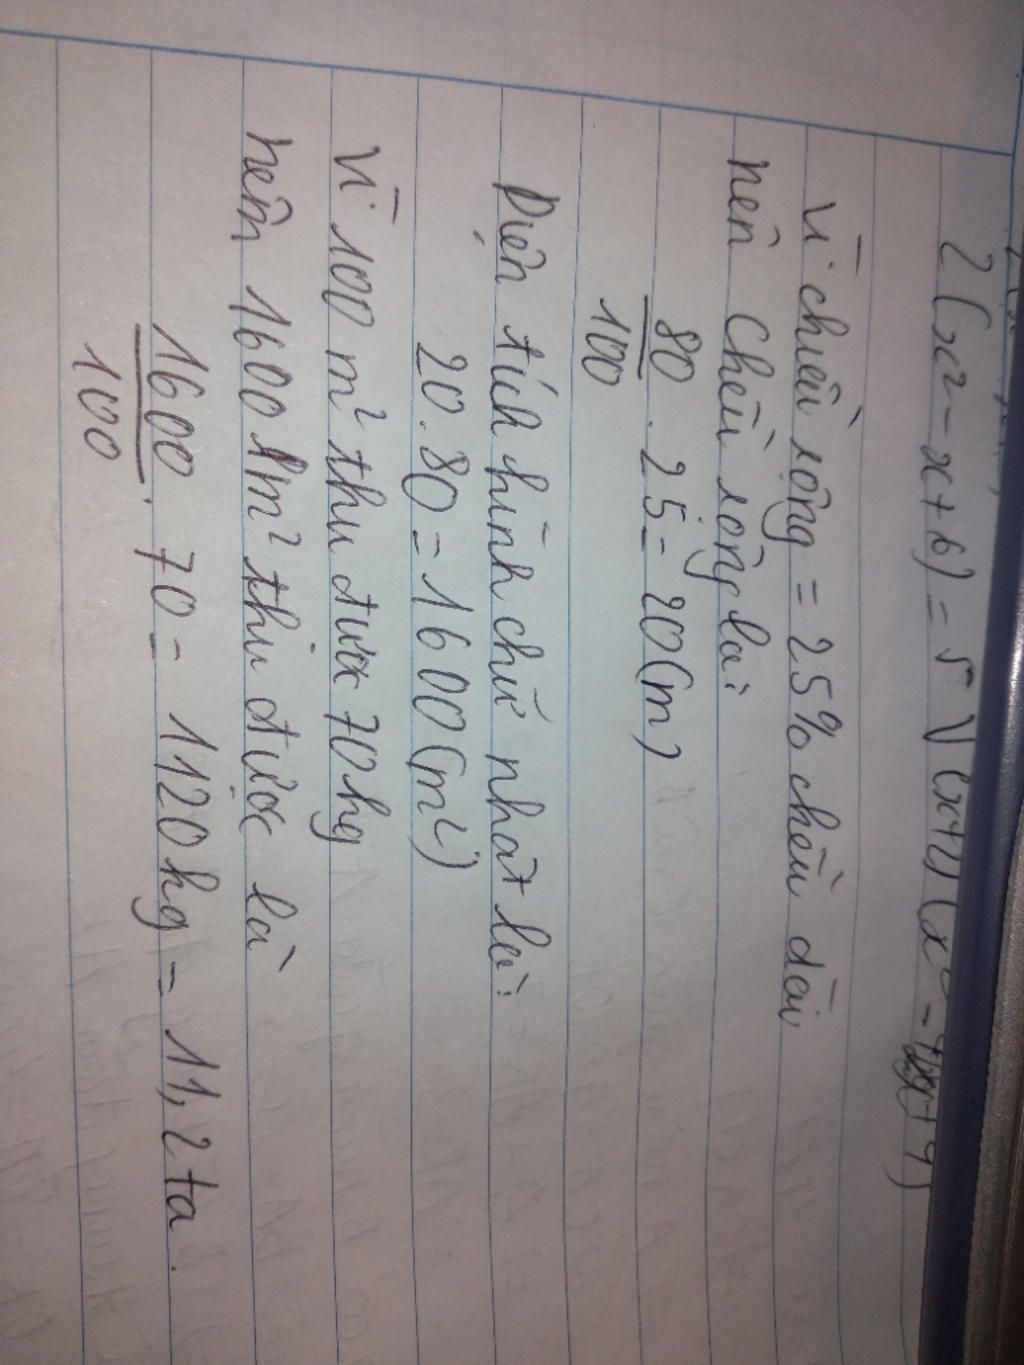 2(x² - x + 6) = 5 √(x+2)(x² - +4)
Vì chiều rộng = 25% chều dài
nên chều rộng là:
80/100 . 25 = 20(m)
Diện tích hình chữ nhật là:
20.80 = 1600(m²)
Vì 100 m² thu được 70 kg
nên 1600 m² thu được là
1600/100 . 70 = 1120 kg = 11,2 ta